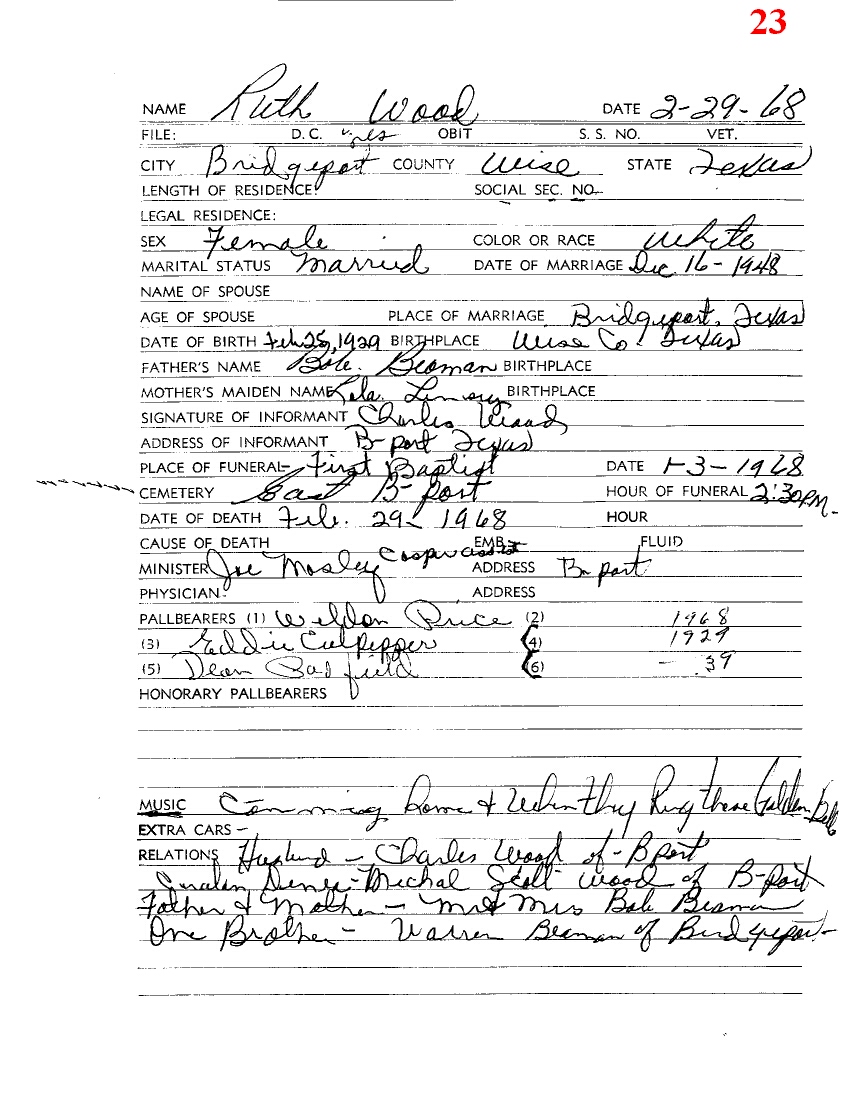 23
NAME Ruth Wood DATE 2-29-68
FILE: D.C. yes OBIT S. S. NO. VET.
CITY Bridgeport COUNTY Wise STATE Texas
LENGTH OF RESIDENCE: SOCIAL SEC. NO.
LEGAL RESIDENCE:
SEX Female COLOR OR RACE White
MARITAL STATUS Married DATE OF MARRIAGE Dec 16-1948
NAME OF SPOUSE
AGE OF SPOUSE PLACE OF MARRIAGE Bridgeport, Texas
DATE OF BIRTH Feb 25, 1929 BIRTHPLACE Wise Co. Texas
FATHER'S NAME Beaman BIRTHPLACE
MOTHER'S MAIDEN NAME BIRTHPLACE
SIGNATURE OF INFORMANT Charles Wood
ADDRESS OF INFORMANT B-port Texas
PLACE OF FUNERAL- First Baptist DATE 1-3-1968
CEMETERY East B-port HOUR OF FUNERAL 2:30 PM-
DATE OF DEATH Feb. 29- 1968 HOUR
CAUSE OF DEATH EMB. FLUID
MINISTER Joe Mosley Cooper assist ADDRESS B-port
PHYSICIAN: ADDRESS
PALLBEARERS (1) Weldon Price (2) 1968
(3) Eddie Culpepper (4) 1929
(5) Dean (6) - 39
HONORARY PALLBEARERS
MUSIC Comming home & When they Ring those Golden Bells
EXTRA CARS -
RELATIONS Husband - Charles Wood of - B port
Michal Scott Wood of B-port
Father & Mother - Mr & Mrs Beaman
One Brother - Warren Beaman of Bridgeport-